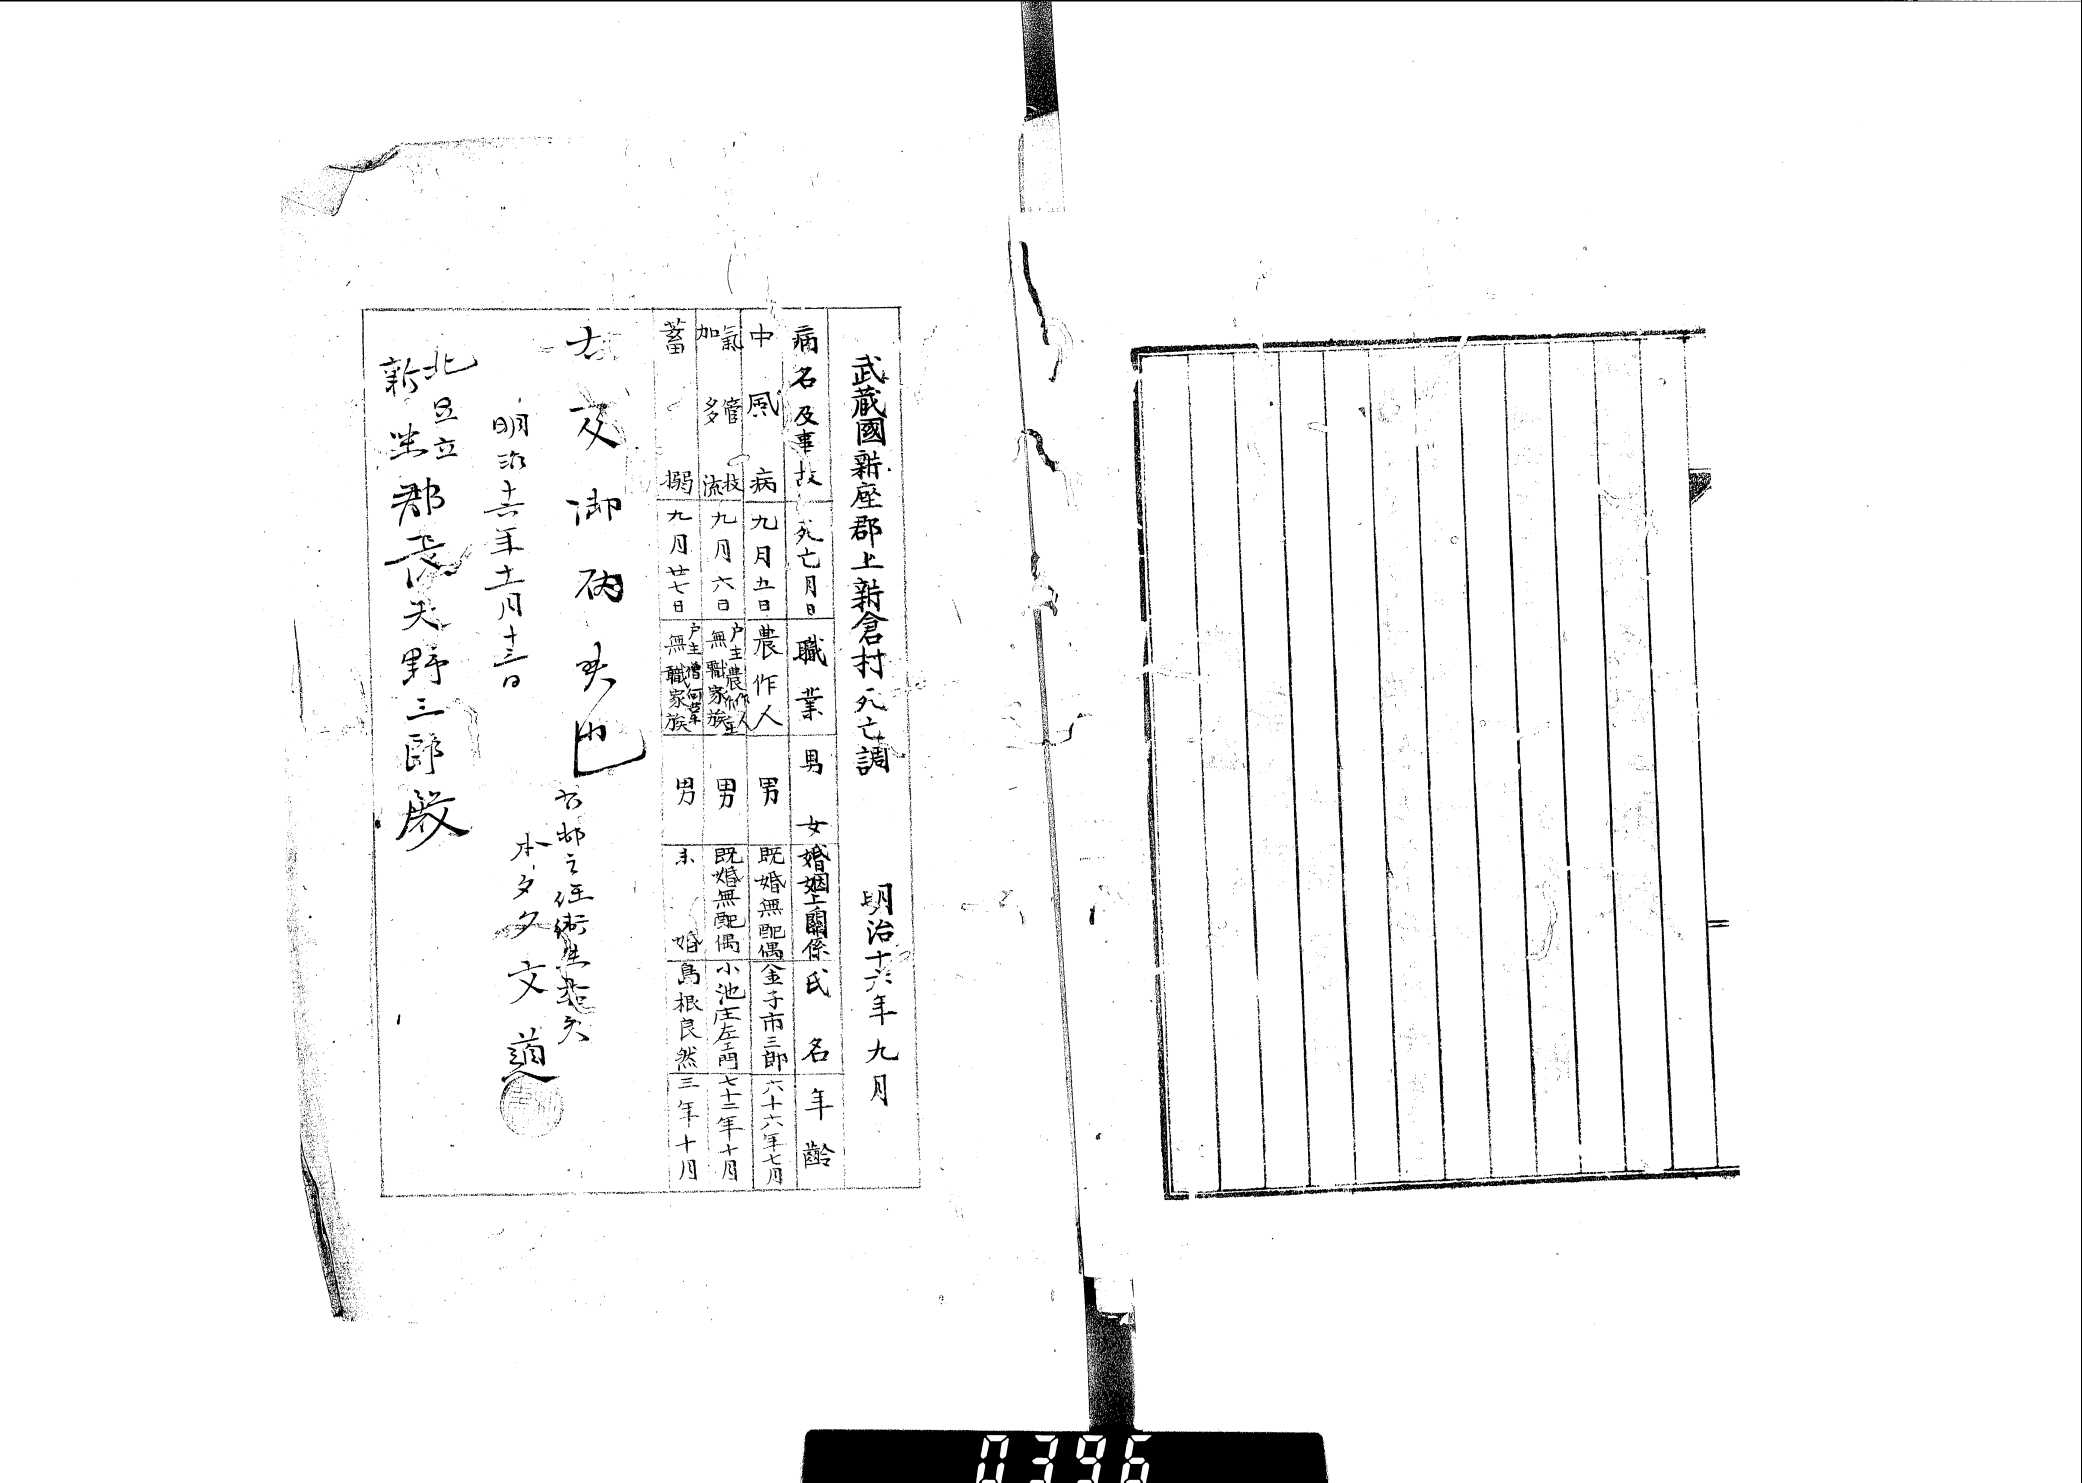 武蔵國新座郡上新倉村死亡調 明治十六年九月
病名及事故 死亡月日 職業 男女 婚姻上關係 氏名 年齢
中風病 九月五日 農作人 男 既婚無配偶 金子市三郎 六十六年七月
氣管枝加多流 九月六日 戸主農作人 無職家族 男 既婚無配偶 小池庄左エ門 七十二年十月
蓄搦 九月廿七日 戸主僧 無職家族 男 未婚 島根良然 三年十月
右及御
也
明治十六年十一月十三日
右村
文道
北足立
新坐郡長天野三郎殿
0396